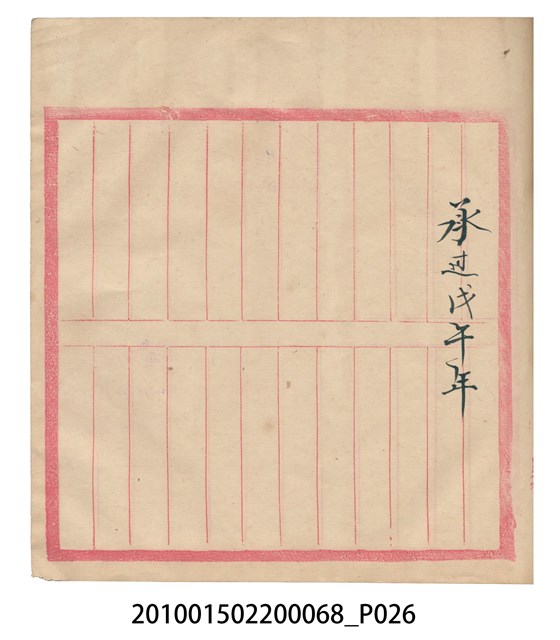 承过戊午年
201001502200068_P026